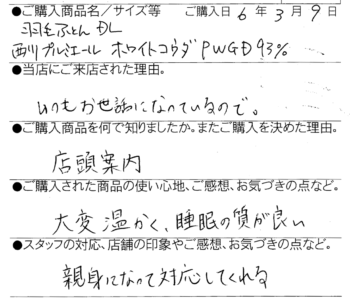 ●ご購入商品名/サイズ等 ご購入日 6年3月9日
羽毛ふとん DL
西川プルミエール ホワイトコウダ PWGD 93%
●当店にご来店された理由。
いつもお世話になっているので。
●ご購入商品を何で知りましたか。またご購入を決めた理由。
店頭案内
●ご購入された商品の使い心地、ご感想、お気づきの点など。
大変温かく、睡眠の質が良い
●スタッフの対応、店舗の印象やご感想、お気づきの点など。
親身になって対応してくれる